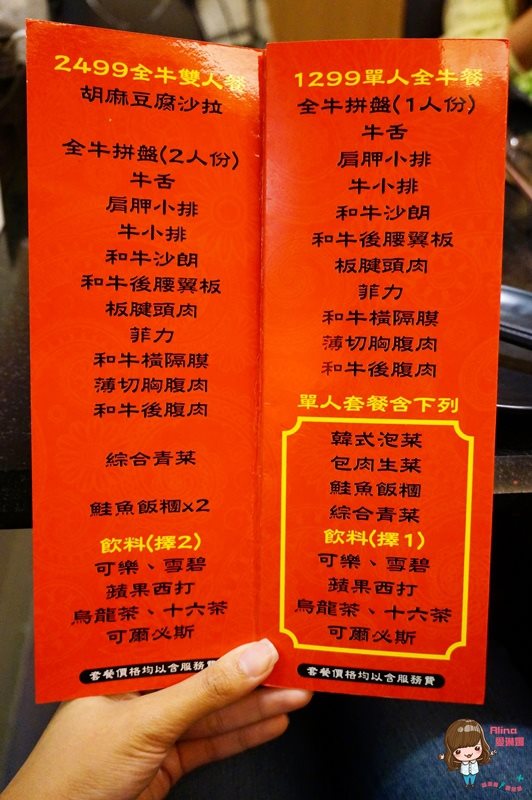 2499全牛雙人餐
胡麻豆腐沙拉
全牛拼盤(2人份)
牛舌
肩胛小排
牛小排
和牛沙朗
和牛後腰翼板
板腱頭肉
菲力
和牛橫隔膜
薄切胸腹肉
和牛後腹肉
綜合青菜
鮭魚飯糰x2
飲料(擇2)
可樂、雪碧
蘋果西打
烏龍茶、十六茶
可爾必斯
套餐價格均以含服務費
1299單人全牛餐
全牛拼盤(1人份)
牛舌
肩胛小排
牛小排
和牛沙朗
和牛後腰翼板
板腱頭肉
菲力
和牛橫隔膜
薄切胸腹肉
和牛後腹肉
單人套餐含下列
韓式泡菜
包肉生菜
鮭魚飯糰
綜合青菜
飲料(擇1)
可樂、雪碧
蘋果西打
烏龍茶、十六茶
可爾必斯
套餐價格均以含服務費
Alina
愛琳娜